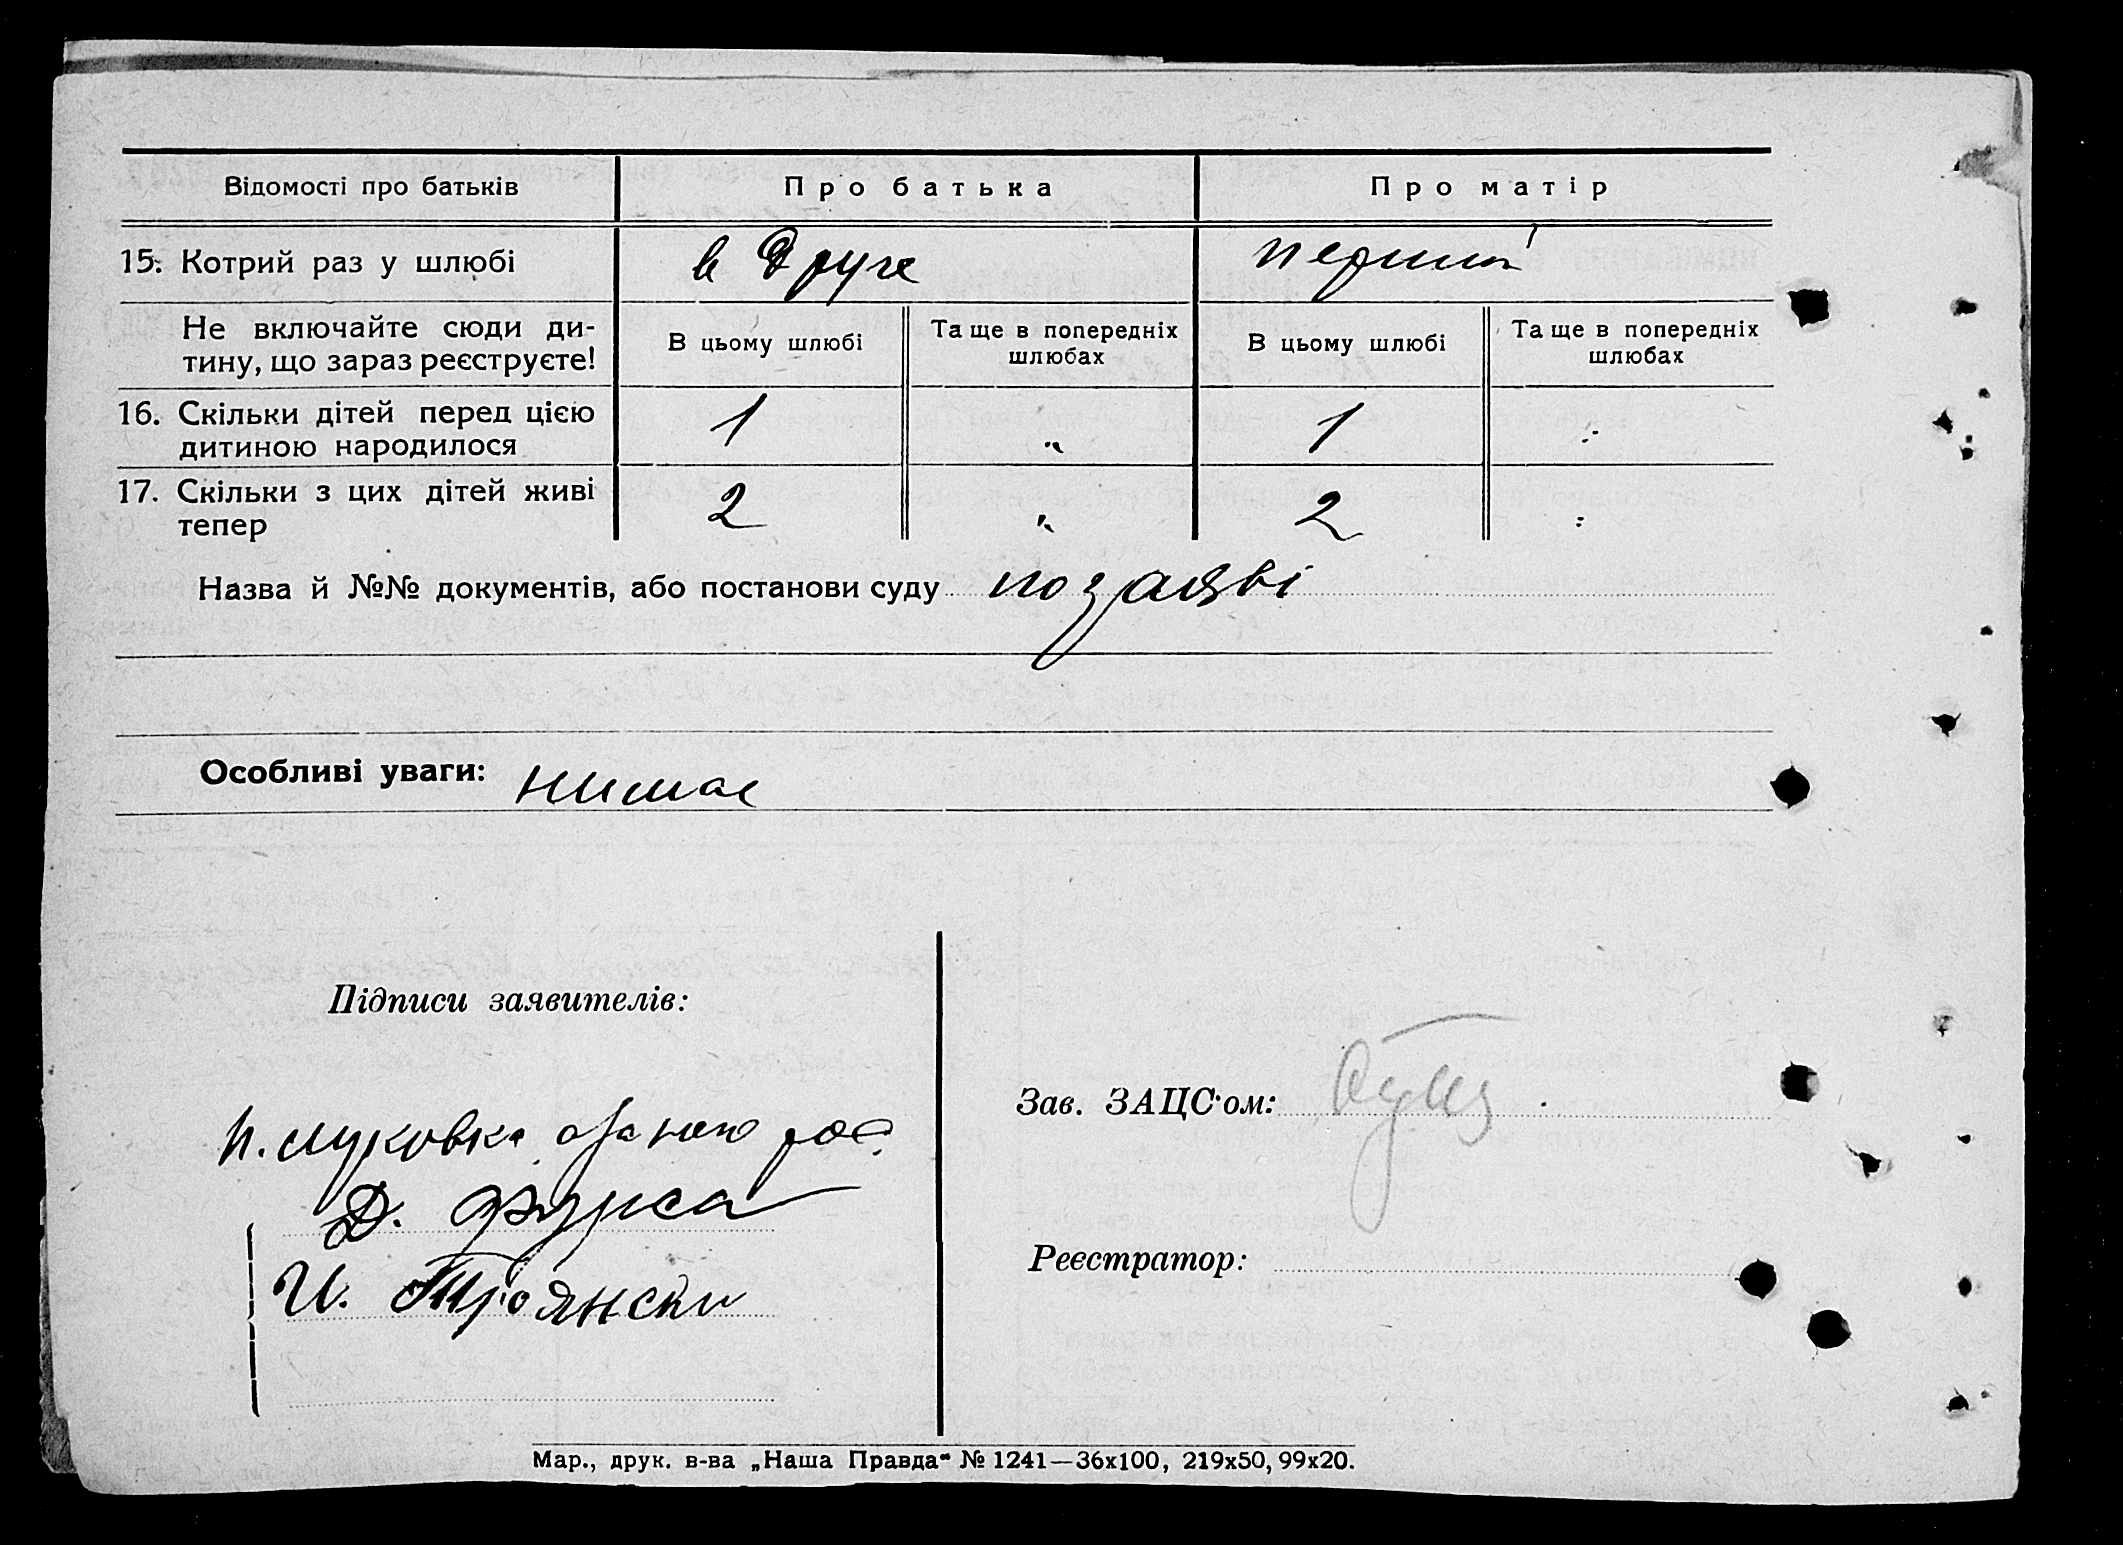 Відомості про батьків Про батька Про матір
15. Котрий раз у шлюбі в друге перший
Не включайте сюди ди-
тину, що зараз реєструєте!
В цьому шлюбі Та ще в попередніх
шлюбах
В цьому шлюбі Та ще в попередніх
шлюбах
16. Скільки дітей перед цією
дитиною народилося 1 „ 1 :
17. Скільки з цих дітей живі
тепер 2 „ 2 :
Назва й №№ документів, або постанови суду по заяві
Особливі уваги: нимає
Підписи заявителів:
Д. Фурса
И. Троянски
Зав. ЗАЦС'ом:
Реєстратор:
Мар., друк. в-ва „Наша Правда“ № 1241—36х100, 219х50, 99х20.